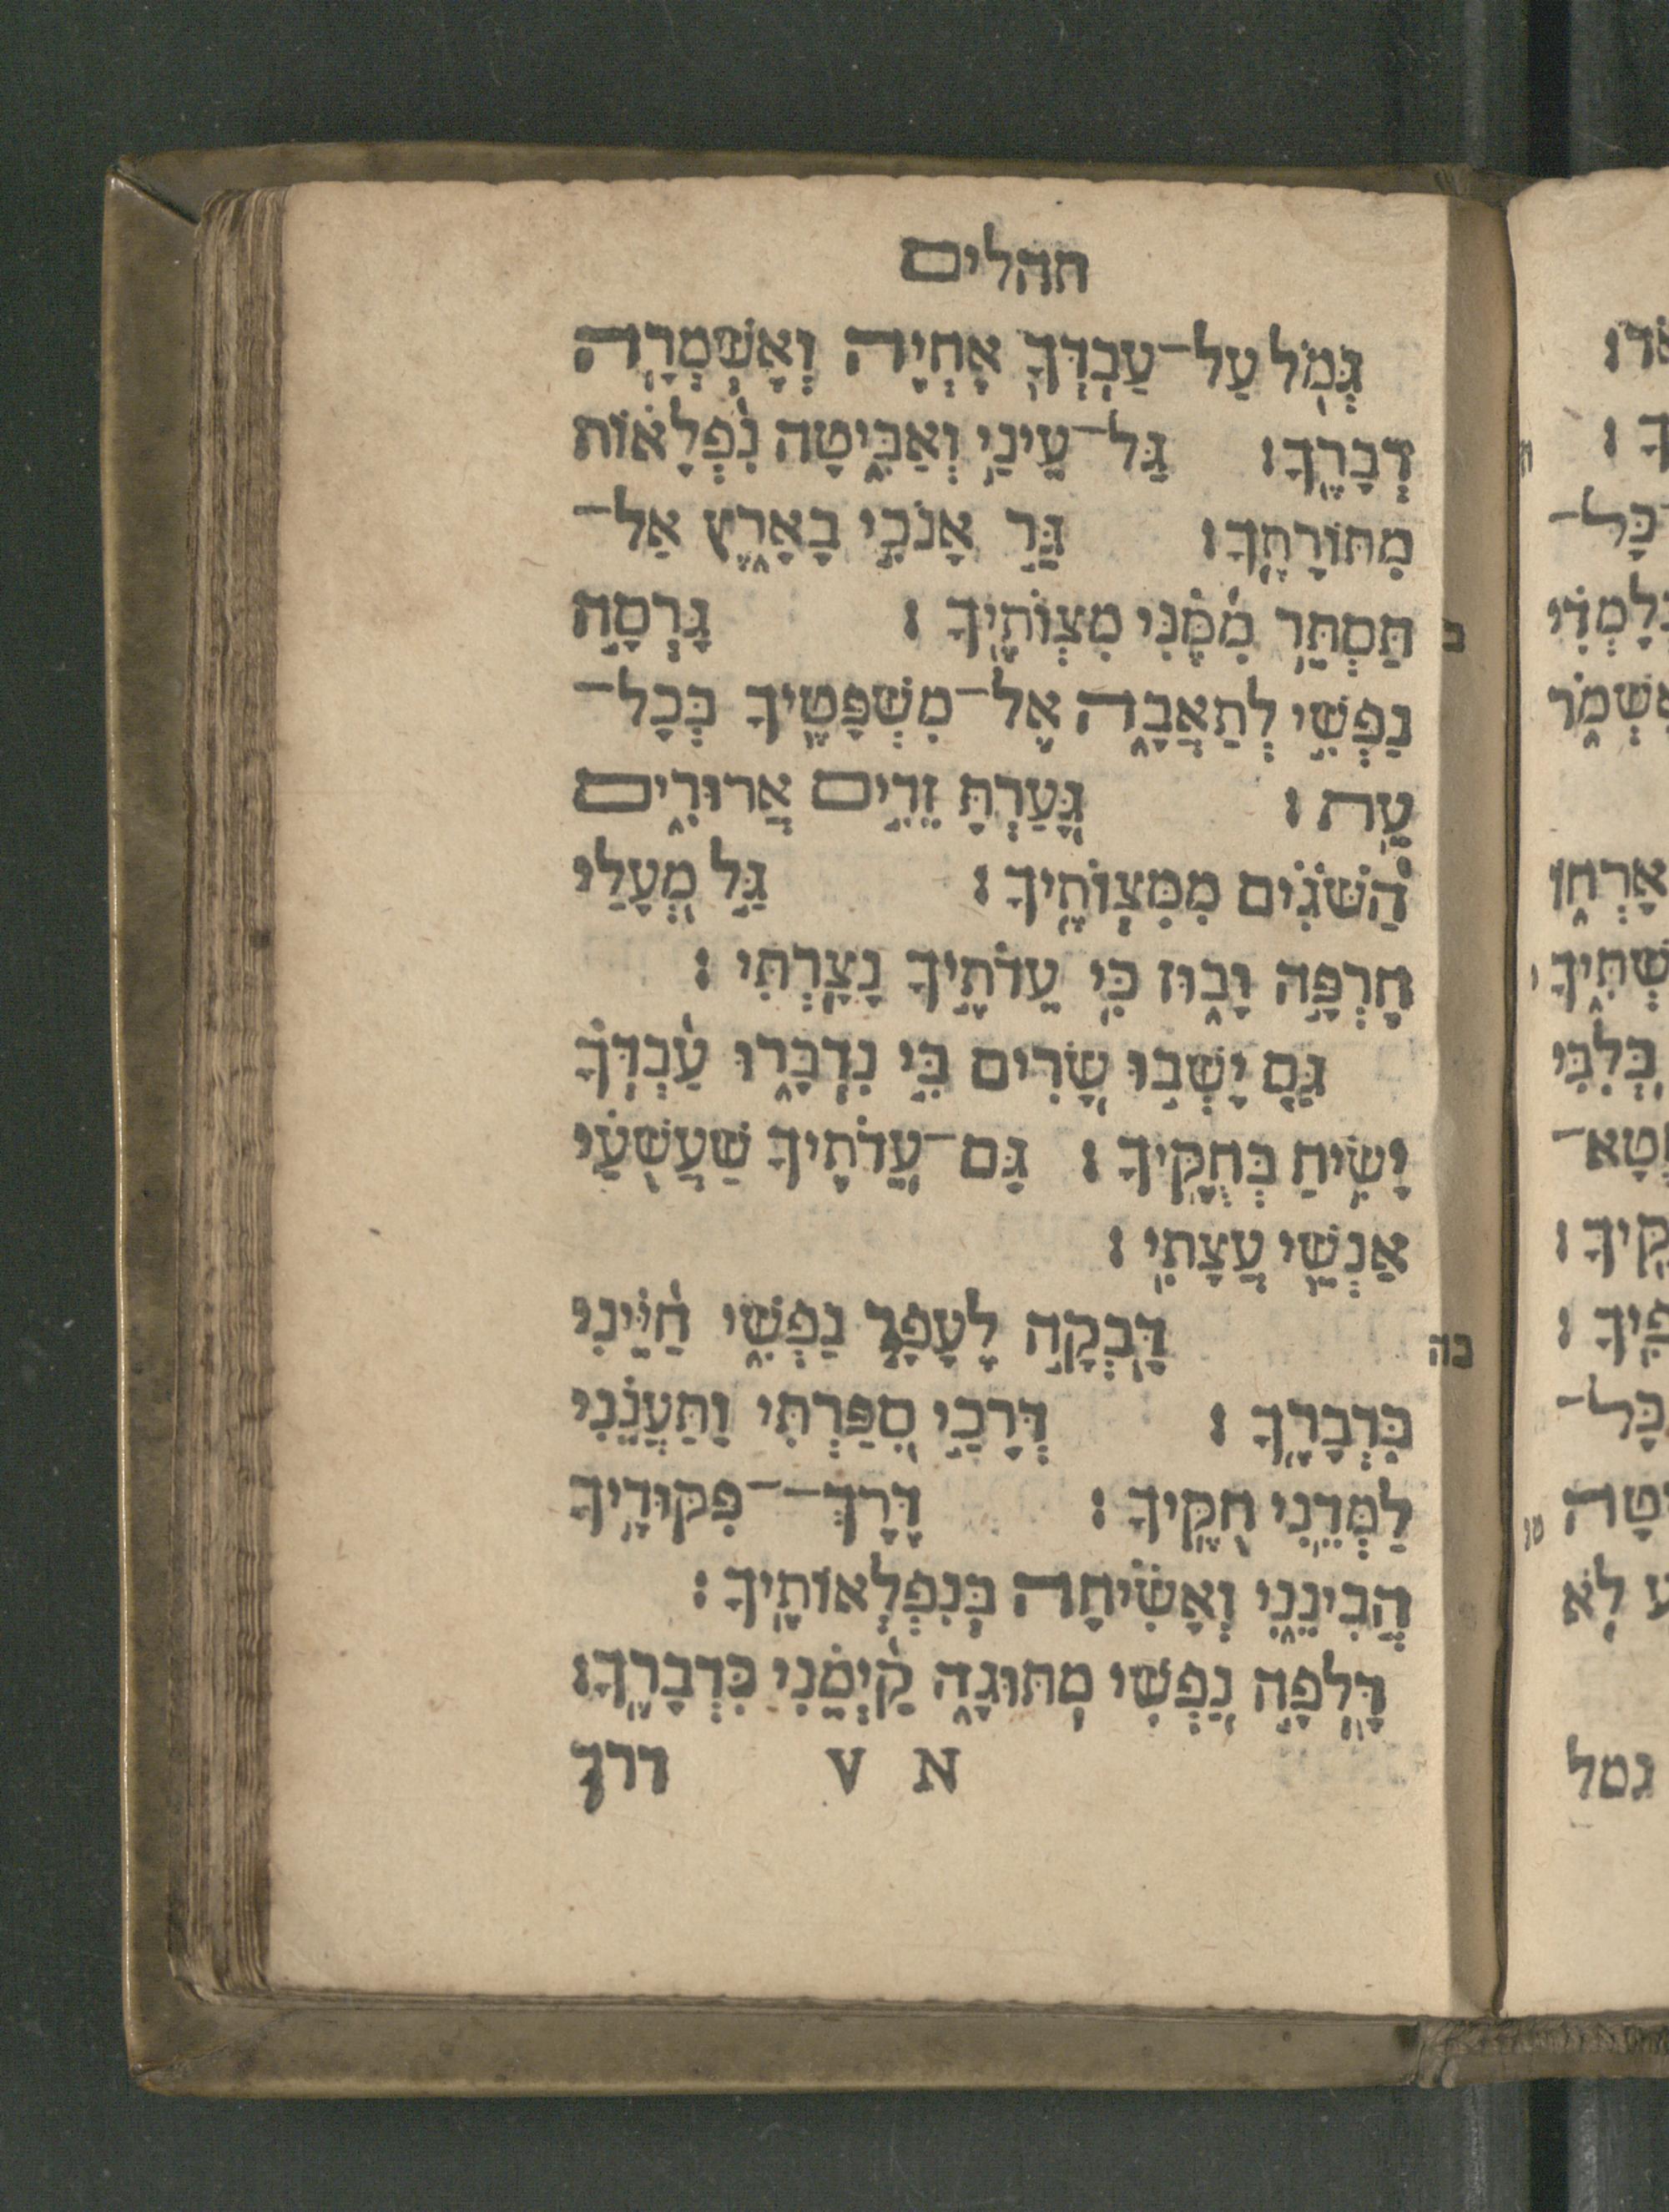 תהלים
גְּמֹ֖ל עַל־עַבְדְּךָ֥ אֶחְיֶ֗ה וְאֶשְׁמְרָ֥ה
דְבָרֶֽךָ׃ גַּל־עֵינַ֥י וְאַבִּ֑יטָה נִ֝פְלָא֗וֹת
מִתּוֹרָתֶֽךָ׃ גֵּ֣ר אָנֹכִ֣י בָאָ֑רֶץ אַל־
תַּסְתֵּ֥ר מִ֝מֶּ֗נִּי מִצְוֹתֶֽיךָ׃ גָּרְסָ֣ה
כ
נַפְשִׁ֣י לְתַאֲבָ֑ה אֶל־מִשְׁפָּטֶ֥יךָ בְכָל־
עֵֽת׃ גָּ֭עַרְתָּ זֵדִ֣ים אֲרוּרִ֑ים
הַ֝שֹּׁגִ֗ים מִמִּצְוֹתֶֽיךָ׃ גַּ֣ל מֵ֭עָלַי
חֶרְפָּ֣ה וָב֑וּז כִּ֖י עֵדֹתֶ֣יךָ נָצָֽרְתִּי׃
גַּ֤ם יָשְׁב֣וּ שָׂ֭רִים בִּ֣י נִדְבָּ֑רוּ עַ֝בְדְּךָ֗
יָשִׂ֥יחַ בְּחֻקֶּֽיךָ׃ גַּֽם־עֵ֭דֹתֶיךָ שַׁעֲשֻׁעָ֗י
אַנְשֵׁ֥י עֲצָתִֽי׃
דָּֽבְקָ֣ה לֶעָפָ֣ר נַפְשִׁ֑י חַ֝יֵּ֗ינִי
כה
כִּדְבָרֶֽךָ׃ דְּרָכַ֣י סִ֭פַּרְתִּי וַֽתַּעֲנֵ֗נִי
לַמְּדֵ֥נִי חֻקֶּֽיךָ׃ דֶּֽרֶךְ־־פִּקּוּדֶ֥יךָ
הֲבִינֵ֑נִי וְ֝אָשִׂ֗יחָה בְּנִפְלְאוֹתֶֽיךָ׃
דָּלְפָ֣ה נַ֭פְשִׁי מִתּוּגָ֑ה קַ֝יְּמֵ֗נִי כִּדְבָרֶֽךָ׃
א v דרך